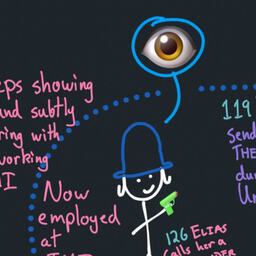 eps showing
and subtly
ring with
working
Now
employed
at
119
Send
THE
du
Un
126 ELIAS
Calls her a